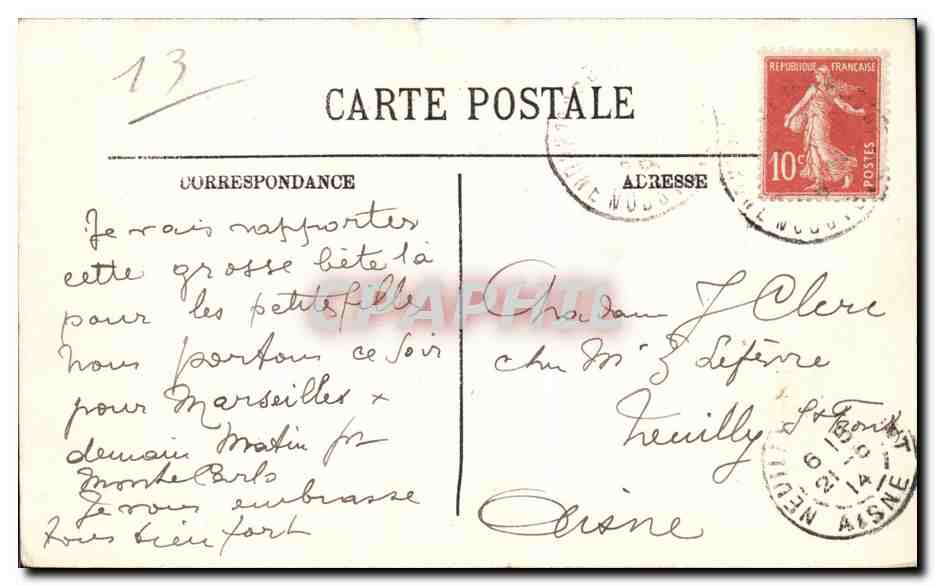 13
CARTE POSTALE
REPUBLIQUE FRANÇAISE
10c
POSTES
CORRESPONDANCE
ADRESSE
Je vais rapporter
cette grosse bête là
pour les petites filles
nous partons ce soir
pour Marseilles x
demain Matin pr
Monte Carlo
Je vous embrasse
tous bien fort
CPAPHIL
Madame J Clerc
chez Mr Lefèvre
Neuilly St Front
Aisne
NEUILLY
6 15
21 - 6
14
AISNE